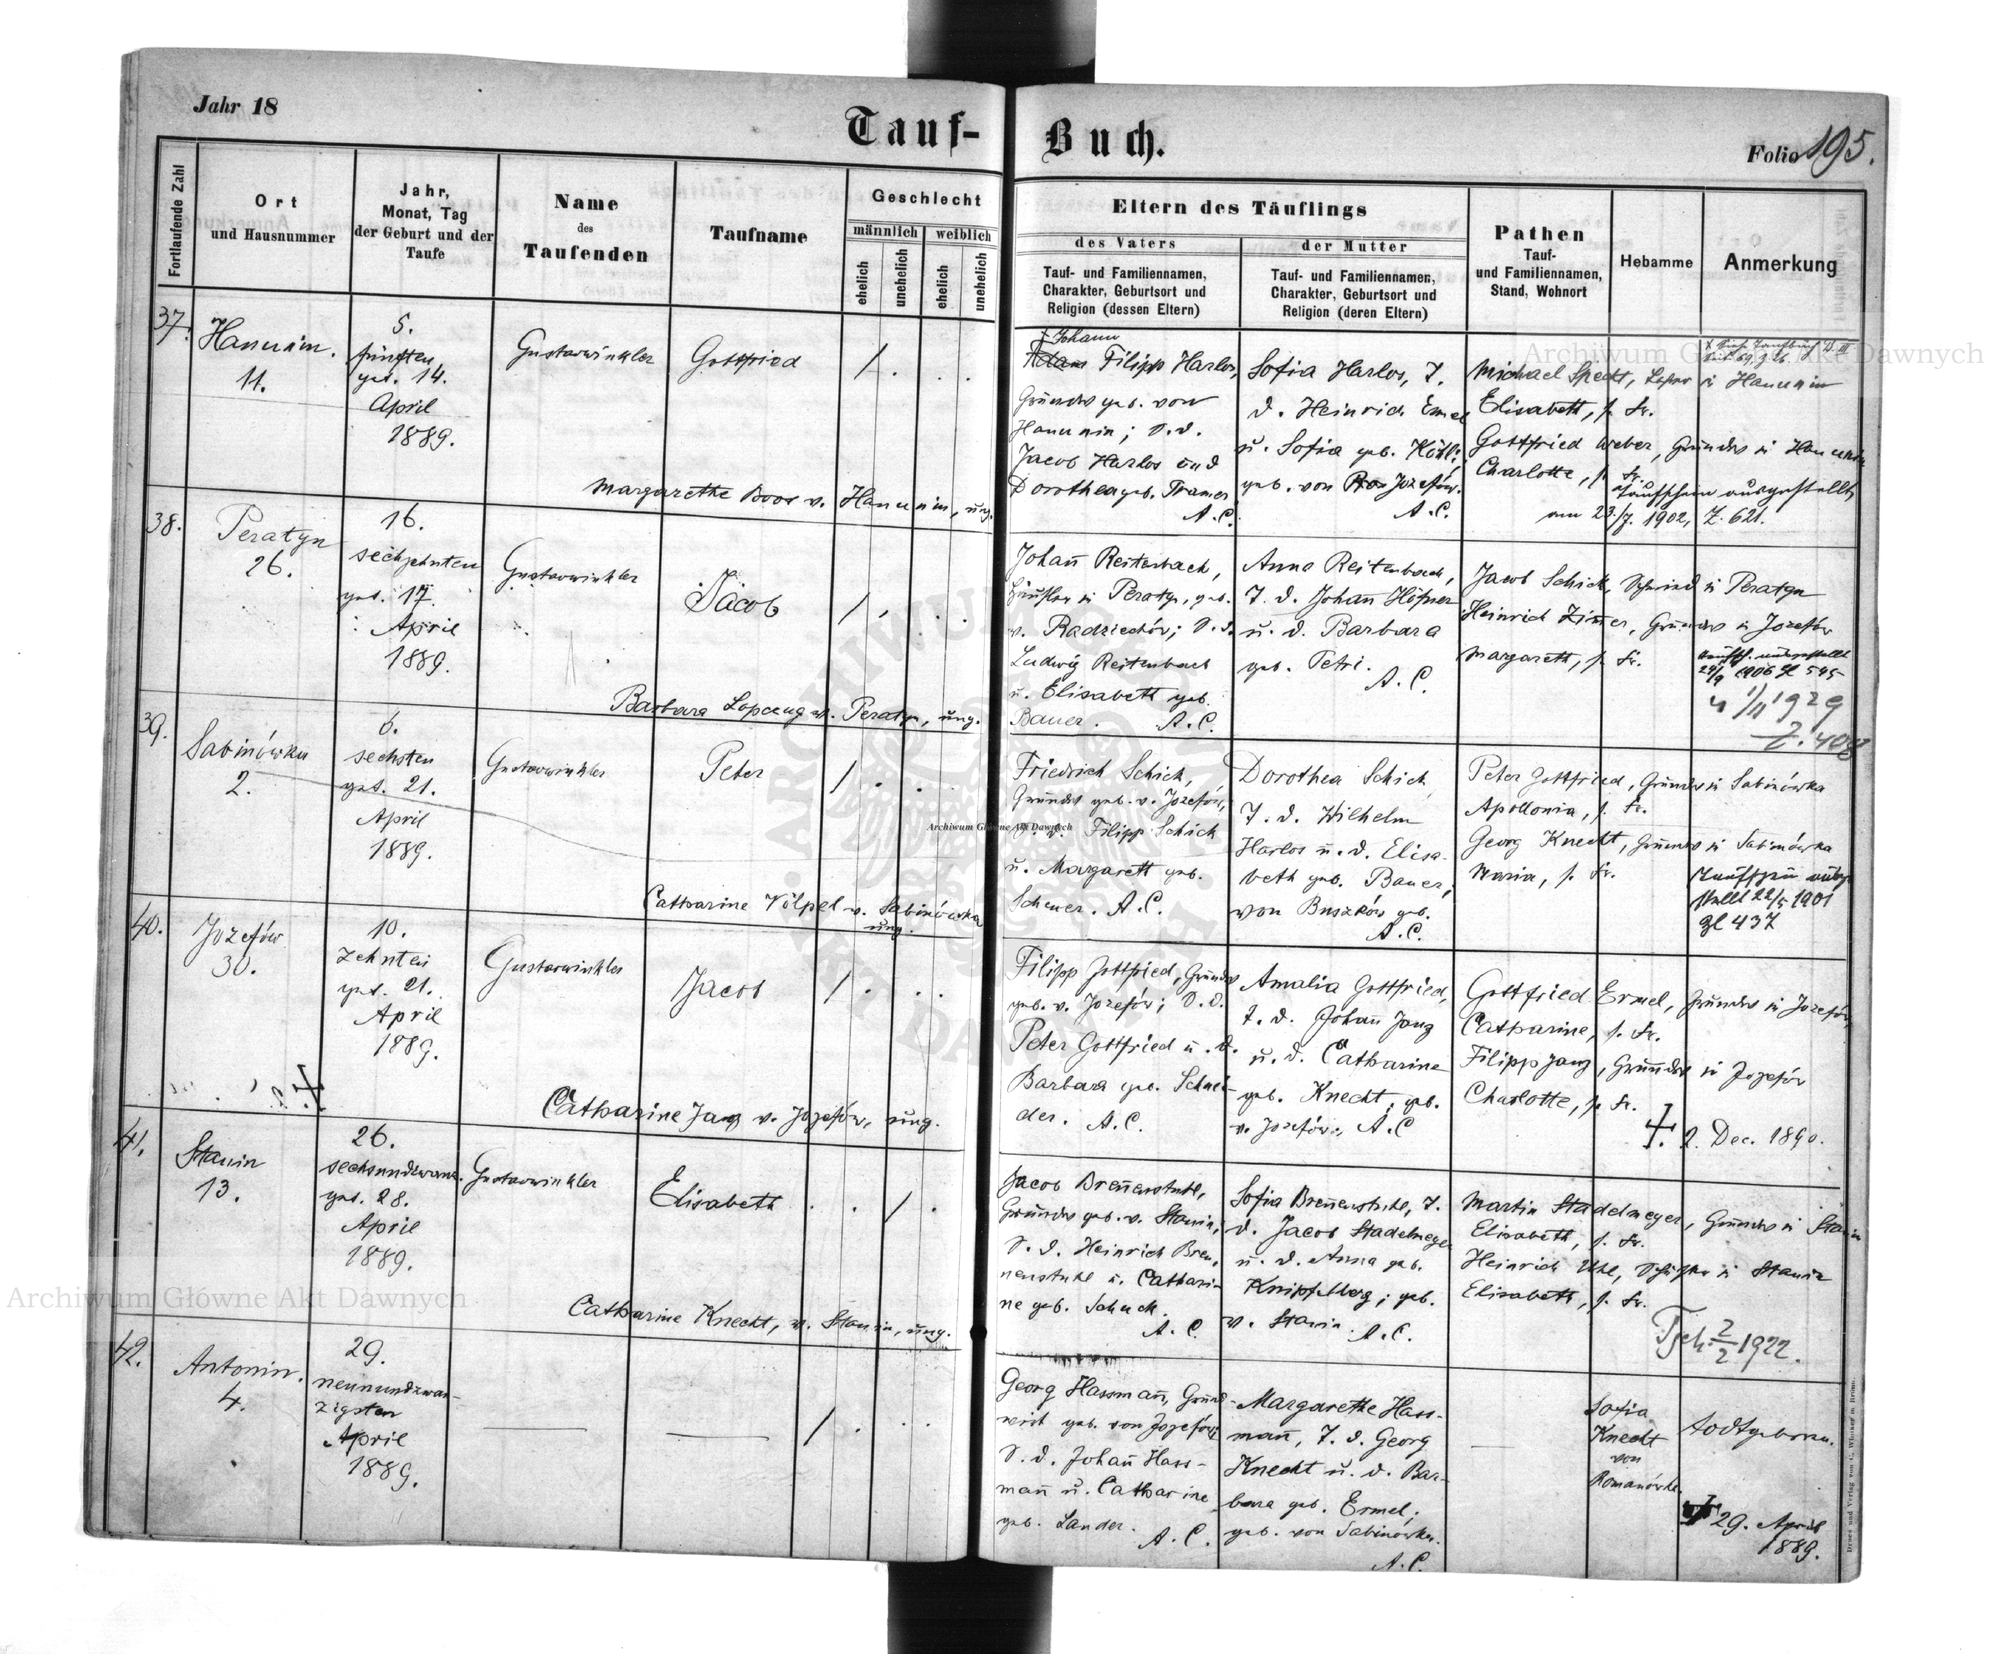 Jahr 18
Tauf-
Buch.
Folio 195.
Fortlaufende Zahl
Ort
und Hausnummer
Jahr,
Monat, Tag
der Geburt und der
Taufe
Name
des
Taufenden
Taufname
Geschlecht
männlich
weiblich
ehelich
unehelich
ehelich
unehelich
Eltern des Täuflings
des Vaters
Tauf- und Familiennamen,
Charakter, Geburtsort und
Religion (dessen Eltern)
der Mutter
Tauf- und Familiennamen,
Charakter, Geburtsort und
Religion (deren Eltern)
Pathen
Tauf-
und Familiennamen,
Stand, Wohnort
Hebamme
Anmerkung
37.
Hanunin.
11.
5.
fünften
get. 14.
April
1889.
Gustavwinkler
Gottfried
/ . . .
Johann
Adam Filipp Harlos,
Grundw. geb. von
Hanunin; S. d.
Jacob Harlos und
Dorothea geb. Tramer
A. C.
Sofia Harlos, T.
d. Heinrich Ermel
u. Sofia geb.
geb. von Jozefów.
A. C.
Siehe Taufbuch D. III
Michael Specht, Lehrer in Hanunin
Elisabeth, s. Fr.
Gottfried Weber, Grundw. in Hanunin
Charlotte, s. Fr.
Taufschein ausgestellt
am 23./7. 1902, Z. 621.
Margarethe Boos v. Hanunin, ung.
38.
Peratyn
26.
16.
sechzehnten
get. 17.
April
1889.
Gustavwinkler
Jacob
/ . . .
Johañ Reitenbach,
Häusler in Peratyn, geb.
v. Radziechów; S. d.
Ludwig Reitenbach
u. Elisabeth geb.
Bauer. A. C.
Anna Reitenbach,
T. d. Johañ Höfner
u. d. Barbara
geb. Petri.
A. C.
Jacob Schick, Schmied in Peratyn
Heinrich Zim̃er, Grundw. in Jozefów
Margareth, s. Fr.
Taufsch. ausgestellt
24/9 1906 Zl 545
1/11 1929
Z. 408
Barbara v. Peratyn, ung.
39.
Sabinówka
2.
6.
sechsten
get. 21.
April
1889.
Gustavwinkler
Peter
/ . . .
Friedrich Schick,
Grundw. geb. v. Jozefów,
S. d. Filipp Schick
u. Margareth geb.
Scheuer. A. C.
Dorothea Schick
T. d. Wilhelm
Harlos u. d. Elisa-
beth geb. Bauer;
von Buszków geb.
A. C.
Peter Gottfried, Grundw. in Sabinówka
Apollonia, s. Fr.
Georg Knecht, Grundw. in Sabinówka
Maria, s. Fr.
Taufschein ausge
stellt 22/5 1901
Zl 437
Catharine Völpel v. Sabinówka
ung.
40.
Jozefów
30.
10.
zehnten
get. 21.
April
1889.
Gustavwinkler
Jacob
/ . . .
Filipp Gottfried, Grundw.
geb. v. Jozefów; S. d.
Peter Gottfried u. d.
Barbara geb. Schnei-
der. A. C.
Amalia Gottfried,
T. d. Johañ Jang
u. d. Catharine
geb. Knecht, geb.
v. Jozefów; A. C
Gottfried Ermel, Grundw. in Jozefów
Catharine, s. Fr.
Filipp Jang, Grundw. in Jozefów
Charlotte, s. Fr.
2. Dec. 1890.
Catharine Jang v. Jozefów, ung.
41.
Stanin
13.
26.
sechsundzwanz.
get. 28.
April
1889.
Gustavwinkler
Elisabeth
. . / .
Jacob Breñenstuhl,
Grundw. geb. v. Stanin;
S. d. Heinrich Bren-
nenstuhl u. Cathari-
ne geb. Schuck.
A. C.
Sofia Breñenstuhl, T.
d. Jacob Stadelmeyer
u. d. Anna geb.
Knipfelberg; geb.
v. Stanin. A. C.
Martin Stadelmeyer, Grundw. in Stanin
Elisabeth, s. Fr.
Heinrich Uhl, Schuster in Stanin
Elisabeth, s. Fr.
Tsch. 2/2 1922.
Catharine Knecht, v. Stanin, ung.
42.
Antonin.
4.
29.
neunundzwan-
zigsten
April
1889.
/ . . .
Georg Hassmañ, Grund-
wirt geb. von Jozefów;
S. d. Johañ Hass-
mañ u. Catharine
geb. Lander.
A. C.
Margarethe Hass-
mañ, T. d. Georg
Knecht u. d. Bar-
bara geb. Ermel;
geb. von Sabinówka.
A. C.
Sofia
Knecht
von
Romanówka.
todtgeboren.
29. April
1889.
Archiwum Główne Akt Dawnych
Archiwum Główne Akt Dawnych
Archiwum Główne Akt Dawnych